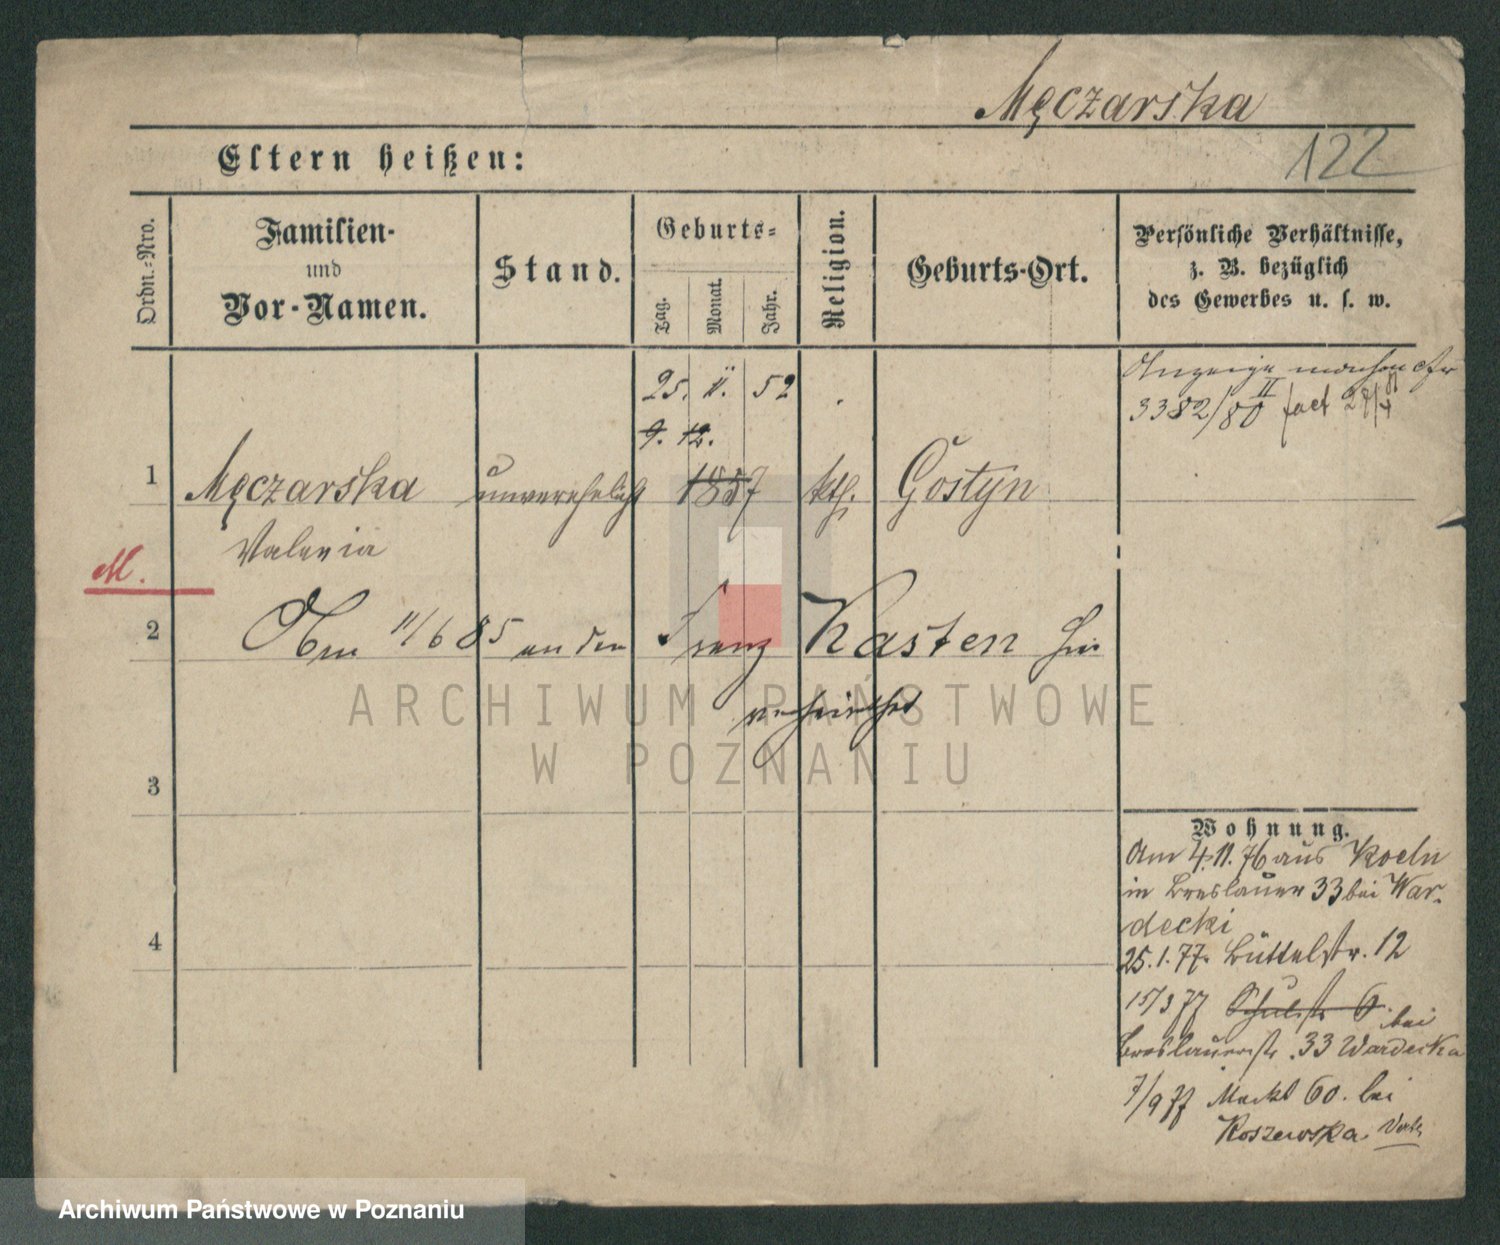 Męczarska
122
Eltern heißen:
Ordn.-Nro.
Familien-
und
Vor-Namen.
Stand.
Geburts-
Tag.
Monat.
Jahr.
Religion.
Geburts-Ort.
Persönliche Verhältnisse,
z. B. bezüglich
des Gewerbes u. s. w.
25. 11. 52
Anzeige
3382/80 II fact
9. 12.
1 Męczarska unverehelicht 1857 kth. Gostyn
Valeria
M.
2 Am 11/6 85 an den Franz Kasten hier
verheirathet
3
4
Wohnung.
Am 4.11.76 aus Koeln
in Breslauer 33 bei War-
decki
25.1.77. Büttelstr. 12
15/3 77 Schulstr 6 bei
Breslauerstr. 33 Wardecka
7/9 77 Markt 60. bei
Koszewska
ARCHIWUM PAŃSTWOWE
W POZNANIU
Archiwum Państwowe w Poznaniu